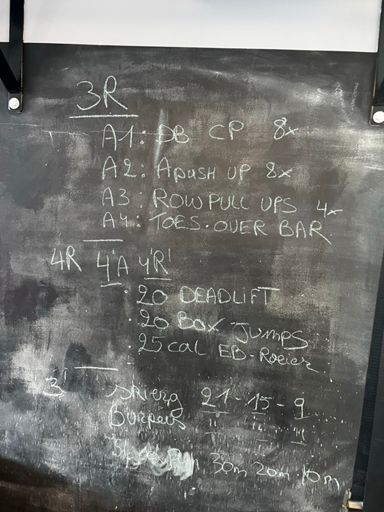 3R
A1: DB CP 8x
A2: A PUSH UP 8x
A3: ROW PULL UPS 4x
A4: TOES-OVER BAR
4R 4'A 4'R'
· 20 DEADLIFT
· 20 BOX JUMPS
· 25 cal EB-Roeier
3' 21 - 15 - 9
Burpees " " "
30m 20m 10m